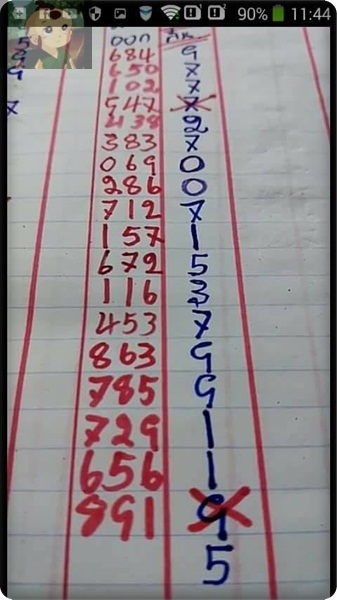 90% 11:44
684 9
650 7
102 7
547
438 2
383 7
069 0
286 0
712 7
157 1
672 5
116 3
453 7
863 9
785 9
729 1
656 1
891 9
5